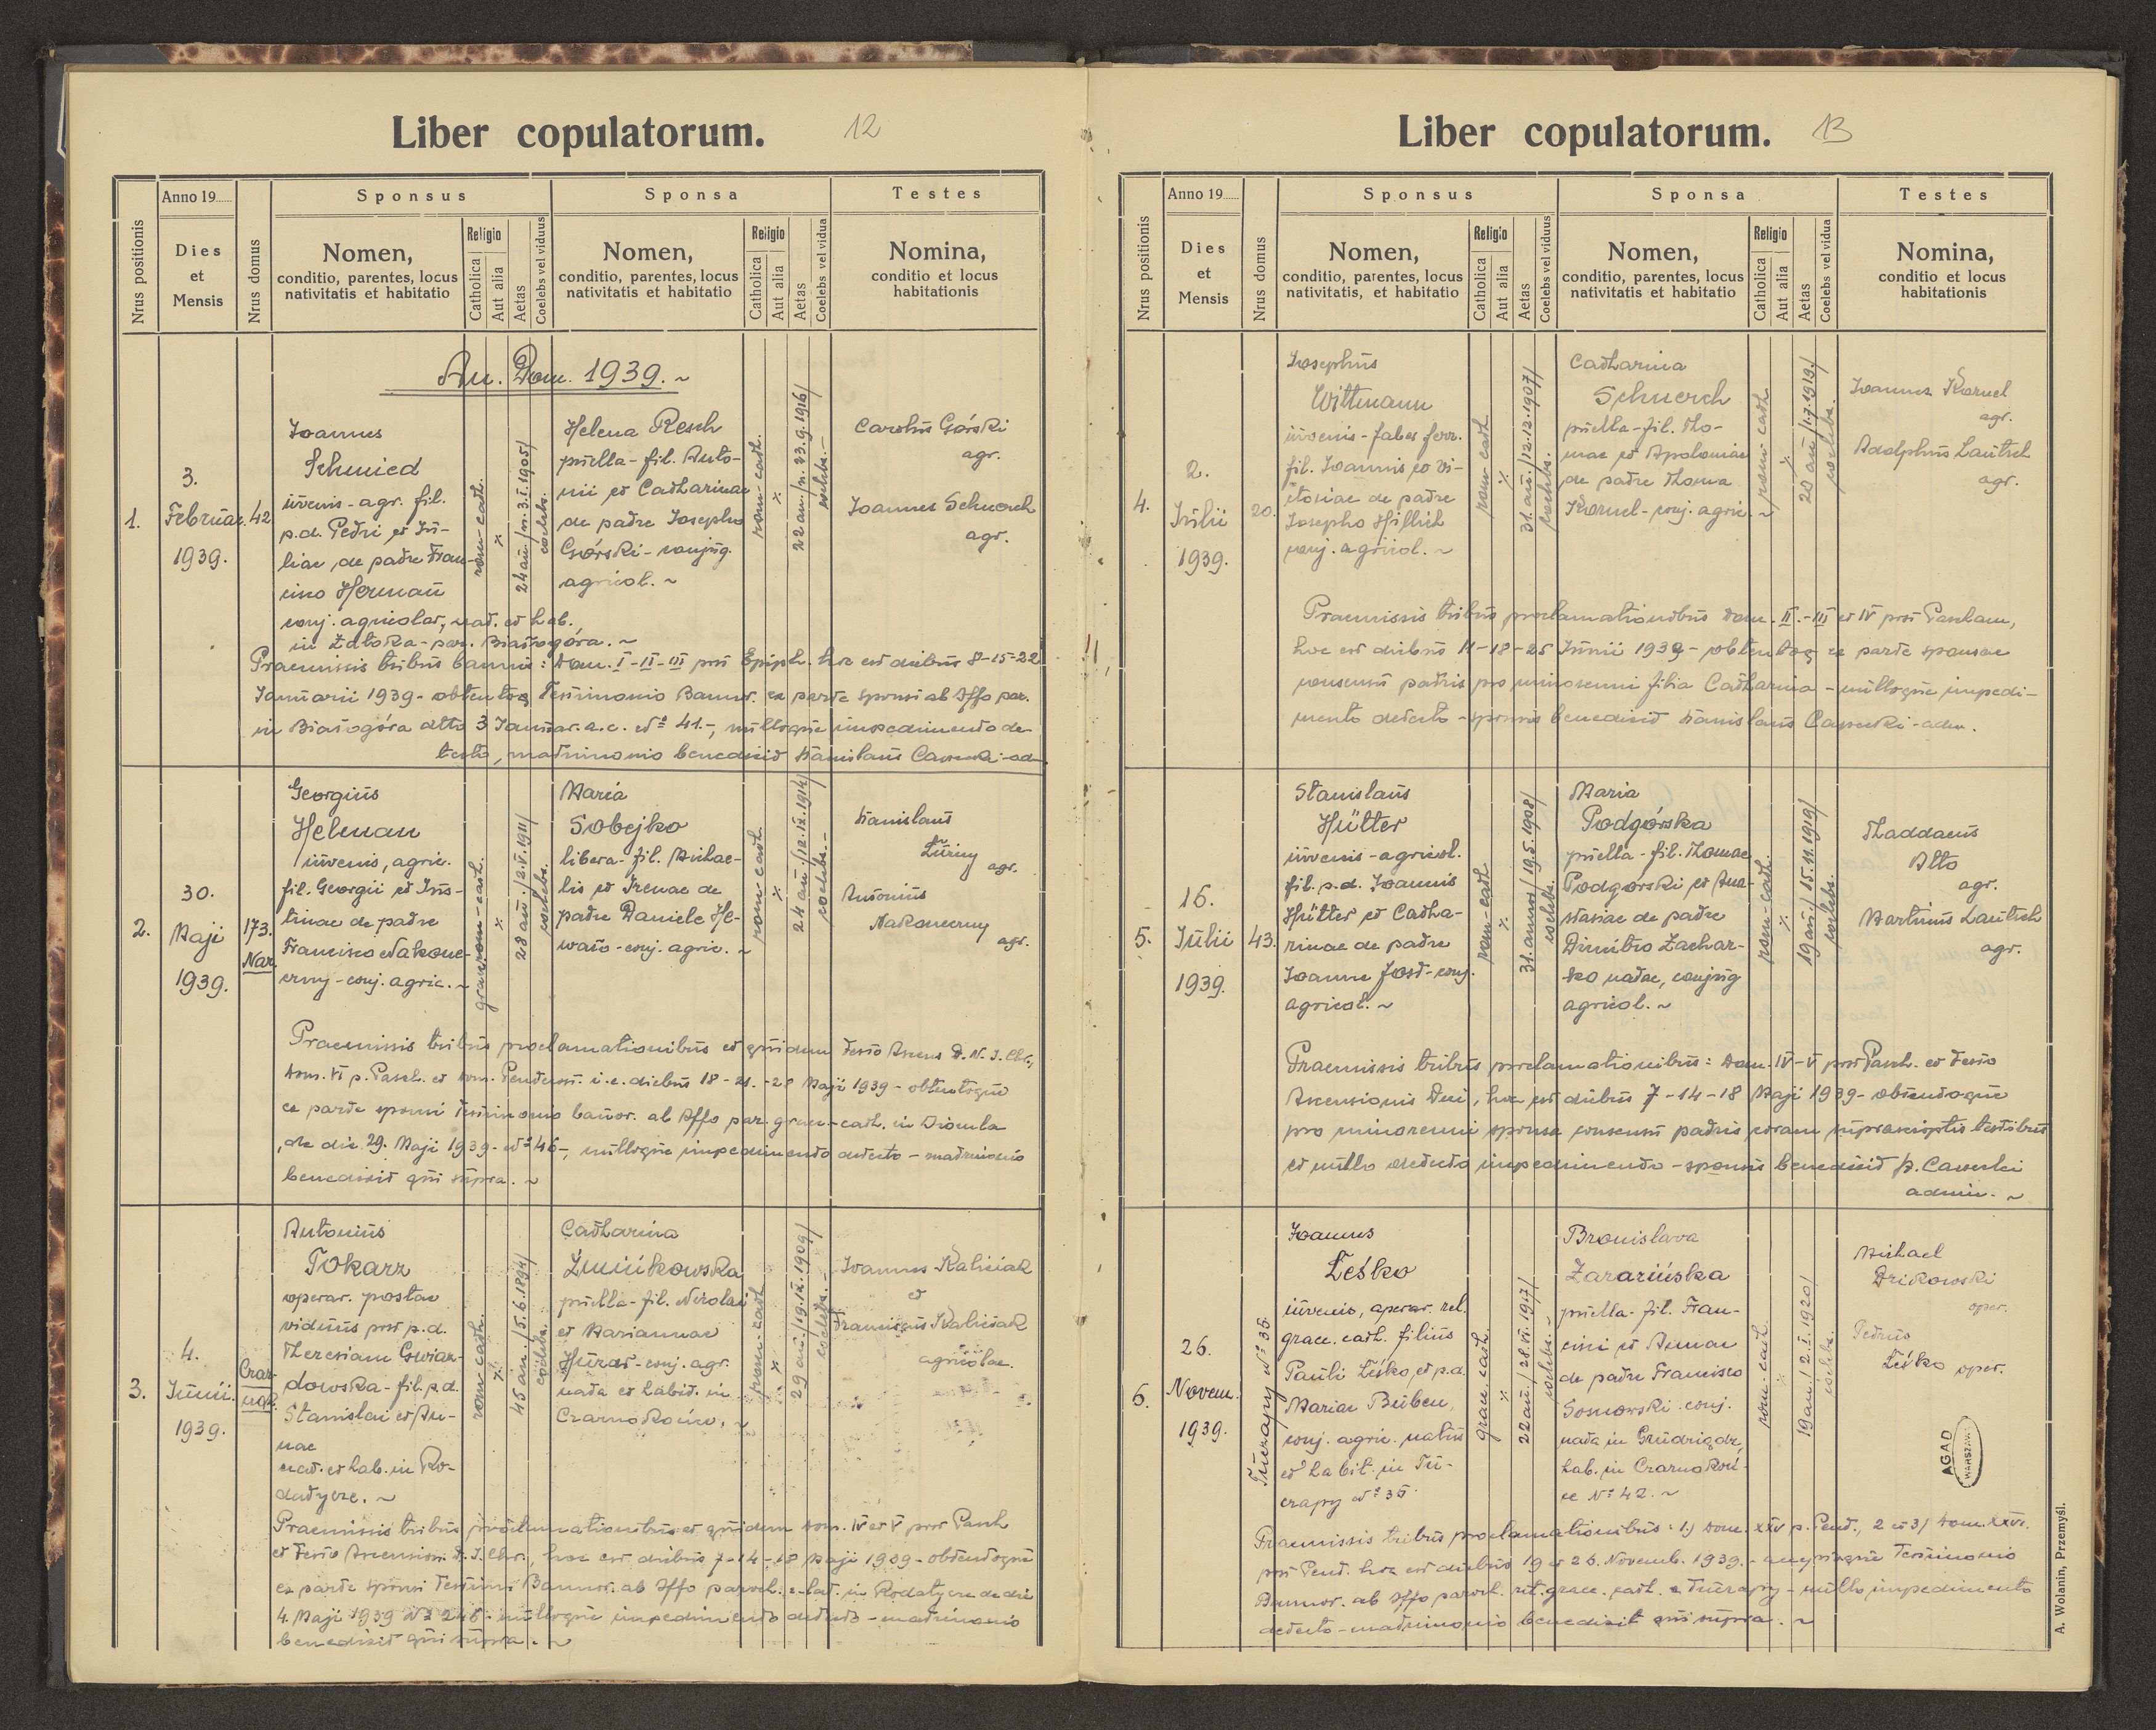 Liber copulatorum. 12
Nrus positionis
Anno 19......
Dies et Mensis
Nrus domus
Sponsus
Nomen,
conditio, parentes, locus
nativitatis et habitatio
Religio
Catholica
Aut alia
Aetas
Coelebs vel viduus
Sponsa
Nomen,
conditio, parentes, locus
nativitatis et habitatio
Religio
Catholica
Aut alia
Aetas
Coelebs vel vidua
Testes
Nomina,
conditio et locus
habitationis
An. Dom. 1939. ~
1.
3.
Februar.
1939.
42
Joannes
Schmied
iuvenis - agr. fil.
p.d. Petri et Ju-
liae, de patre Fran-
cisco Hermann
conj. agricolar, nat. et hab.
in Zatoka - par. Białogóra. ~
rom-cath.
24 an. /n. 3.I.1905/
coelebs.
Helena Resch
puella - fil. Anto-
nii et Catharinae
de patre Josepho
Górski - conjug.
agricol. ~
rom-cath.
22 an. /n. 23.9.1916/
coelebs. -
Carolus Górski
agr.
Joannes Schnerch
agr.
Praemissis tribus bannis: Dom. I-II-III post Epiph. hoc est diebus 8-15-22
Januarii 1939 - obtentoq Testimonio Bannor. ex parte sponsi ab Offo par.
in Białogóra dtto 3 Januar. a.c. No 41.-, nulloque impedimento de-
tecto, matrimonio benedixit Stanislaus
2.
30.
Maji
1939.
173.
Nar.
Georgius
Helman
iuvenis, agric.
fil. Georgii et Jus-
tinae de patre
Francisco Nakone-
czny - conj. agric. ~
28 an. /2.V.1911/
coelebs.
Maria
Sobejko
libera - fil. Michae-
lis et Irenae de
patre Daniele He-
wało - conj. agric. ~
rom-cath.
24 an. /12.IX.1914/
coelebs. -
Stanislaus
agr.
Antonius
Nakoneczny
agr.
Praemissis tribus proclamationibus et quidem Festo Ascens. D.N.J.Chr.,
Dom. VI p. Pasch. et Dom. Pentecost. i.e. diebus 18-21-28 Maji 1939 - obtentoque
ex parte sponsi testimonio bannor. ab Offo par. graec-cath. in
de die 29. Maji 1939 - No 46 -, nulloque impedimento detecto - matrimonio
benedixit qui supra. ~
3.
4.
Junii.
1939.
Antonius
Tokarz
operar. postae
viduus post p.d.
Theresiam
dowska - fil. p.d.
Stanislai et An-
nae
nat. et hab. in Ro-
datycze. ~
rom-cath.
45 an. /5.6.1894/
Catharina
Żmińkowska
puella - fil. Nicolai
et Mariannae
Huzar - conj. agr.
nata et habit. in
Czarnokońce. ~
rom-cath.
29 an. /19.IX.1909/
coelebs. -
Joannes Kaliciak
et
Franciscus Kaliciak
agricolae.
Praemissis tribus proclamationibus et quidem Dom. IV et V post Pasch
et Festo Ascension. D.J.Chr., hoc est diebus 7-14-18 Maji 1939 - obtentoque
ex parte sponsi Testim. Bannor. ab Offo paroch. r.-lat. in Rodatycze de die
4. Maji 1939 No 246 - nulloque impedimento detecto - matrimonio
benedixit qui supra. ~
Liber copulatorum. 13
Nrus positionis
Anno 19......
Dies et Mensis
Nrus domus
Sponsus
Nomen,
conditio, parentes, locus
nativitatis, et habitatio
Religio
Catholica
Aut alia
Aetas
Coelebs vel viduus
Sponsa
Nomen,
conditio, parentes, locus
nativitatis et habitatio
Religio
Catholica
Aut alia
Aetas
Coelebs vel vidua
Testes
Nomina,
conditio et locus
habitationis
4.
2.
Julii
1939.
20.
Josephus
Wittmann
iuvenis - faber ferr.
fil. Joannis et Vi-
ctoriae de patre
Josepho Hillich
conj. agricol. ~
rom-cath
31. an. /12.12.1907/
coelebs.
Catharina
Schnerch
puella - fil. Tho-
mae et Apoloniae
de patre Thoma
Kornel - conj. agric. ~
rom-cath
20 an /1.7.1919/
coelebs.
Joannes Kornel
agr.
Adolphus Lautsch
agr.
Praemissis tribus proclamationibus Dom. II.-III et IV post Pentam,
hoc est diebus 11-18-25 Junii 1939 - obtentoq ex parte sponsae
consensu patris pro minorenni filia Catharina - nulloque impedi-
mento detecto - sponsis benedixit Stanislaus
5.
16.
Julii
1939.
43.
Stanislaus
Hütter
iuvenis - agricol.
fil. p.d. Joannis
Hütter et Catha-
rinae de patre
Joanne Jost - conj.
agricol. ~
rom-cath
31. annor /19.5.1908/
coelebs.
Maria
Podgórska
puella - fil. Thomae
Podgórski et Ana-
stasiae de patre
Dimitro Zachar-
ko natae, conjug
agricol. ~
rom-cath.
19 an /15.11.1919/
coelebs.
Thaddaeus
Alto
agr.
Martinus Lautsch
agr.
Praemissis tribus proclamationibus: Dom. IV-V post Pasch. et Festo
Ascensionis Dni, hoc est diebus 7-14-18 Maji 1939 - obtentoque
pro minorenni sponsa consensu patris coram suprascriptis testibus
et nullo detecto impedimento - sponsis benedixit
admin. ~
6.
26.
Novem.
1939.
Tuczapy No 35.
Joannes
Leśko
iuvenis, operar. rel.
graec. cath. filius
Pauli Leśko et p.d.
Mariae Buben,
conj. agric. natus
et habit. in Tu-
czapy No 35.
graec cath.
22 an /28.VI.1917/
coelebs. -
Bronislava
puella - fil. Fran-
cisci et Annae
de patre Francisco
Sosnowski conj.
nata in Grudziądz,
hab. in Czarnokoń-
ce No 42. ~
rom-cath.
19 an /2.I.1920/
coelebs.
Michael
Dzikowski
oper.
Petrus
Leśko oper.
AGAD
WARSZAWA
Praemissis tribus proclamationibus: 1) Dom. XXV p. Pent., 2 et 3) Dom. XXVI.
post Pent. hoc est diebus 19 et 26. Novemb. 1939. - Testimonio
Bannor. ab Offo paroch. rit. graec. cath. Tuczapy - nullo impedimento
detecto - matrimonio benedixit qui supra. ~
A. Wolanin, Przemyśl.